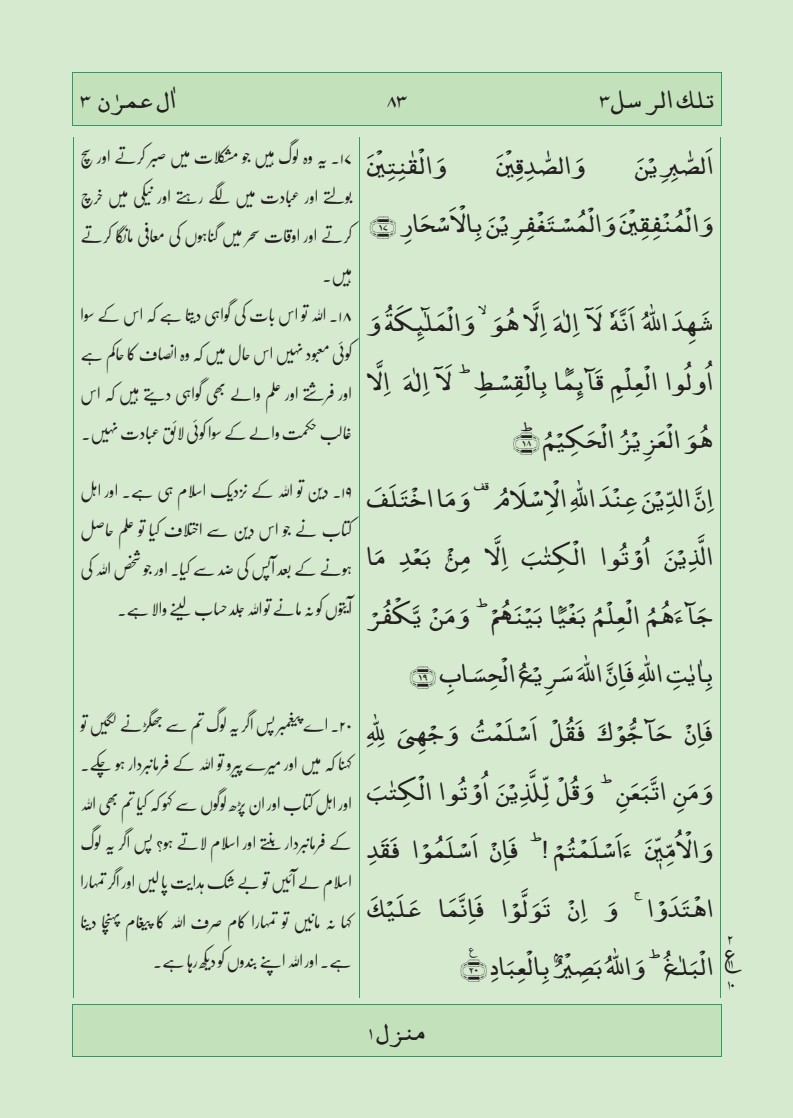 تلك الرسل ۳
۸۳
اٰل عمرٰن ۳
اَلصّٰبِرِيْنَ وَالصّٰدِقِيْنَ وَالْقٰنِتِيْنَ
وَالْمُنْفِقِيْنَ وَالْمُسْتَغْفِرِيْنَ بِالْاَسْحَارِ ۱۷
شَهِدَ اللّٰهُ اَنَّهٗ لَآ اِلٰهَ اِلَّا هُوَ ۙ وَالْمَلٰٓئِكَةُ وَ
اُولُوا الْعِلْمِ قَآئِمًۢا بِالْقِسْطِ ؕ لَآ اِلٰهَ اِلَّا
هُوَ الْعَزِيْزُ الْحَكِيْمُ ؕ ۱۸
اِنَّ الدِّيْنَ عِنْدَ اللّٰهِ الْاِسْلَامُ ۟ قف وَمَا اخْتَلَفَ
الَّذِيْنَ اُوْتُوا الْكِتٰبَ اِلَّا مِنْۢ بَعْدِ مَا
جَآءَهُمُ الْعِلْمُ بَغْيًۢا بَيْنَهُمْ ؕ وَمَنْ يَّكْفُرْ
بِاٰيٰتِ اللّٰهِ فَاِنَّ اللّٰهَ سَرِيْعُ الْحِسَابِ ۱۹
فَاِنْ حَآجُّوْكَ فَقُلْ اَسْلَمْتُ وَجْهِيَ لِلّٰهِ
وَمَنِ اتَّبَعَنِ ؕ وَقُلْ لِّلَّذِيْنَ اُوْتُوا الْكِتٰبَ
وَالْاُمِّيّٖنَ ءَاَسْلَمْتُمْ ! ؕ فَاِنْ اَسْلَمُوْا فَقَدِ
اهْتَدَوْا ۚ وَ اِنْ تَوَلَّوْا فَاِنَّمَا عَلَيْكَ
الْبَلٰغُ ؕ وَاللّٰهُ بَصِيْرٌۢ بِالْعِبَادِ ۲۰ ع
۲
ع
۱۰
۱۷۔ یہ وہ لوگ ہیں جو مشکلات میں صبر کرتے اور سچ
بولتے اور عبادت میں لگے رہتے اور نیکی میں خرچ
کرتے اور اوقات سحر میں گناہوں کی معافی مانگا کرتے
ہیں۔
۱۸۔ اللہ تو اس بات کی گواہی دیتا ہے کہ اس کے سوا
کوئی معبود نہیں اس حال میں کہ وہ انصاف کا حاکم ہے
اور فرشتے اور علم والے بھی گواہی دیتے ہیں کہ اس
غالب حکمت والے کے سوا کوئی لائق عبادت نہیں۔
۱۹۔ دین تو اللہ کے نزدیک اسلام ہی ہے۔ اور اہل
کتاب نے جو اس دین سے اختلاف کیا تو علم حاصل
ہونے کے بعد آپس کی ضد سے کیا۔ اور جو شخص اللہ کی
آیتوں کو نہ مانے تو اللہ جلد حساب لینے والا ہے۔
۲۰۔ اے پیغمبر پس اگر یہ لوگ تم سے جھگڑنے لگیں تو
کہنا کہ میں اور میرے پیرو تو اللہ کے فرمانبردار ہو چکے۔
اور اہل کتاب اور ان پڑھ لوگوں سے کہو کہ کیا تم بھی اللہ
کے فرمانبردار بنتے اور اسلام لاتے ہو؟ پس اگر یہ لوگ
اسلام لے آئیں تو بے شک ہدایت پا لیں اور اگر تمہارا
کہا نہ مانیں تو تمہارا کام صرف اللہ کا پیغام پہنچا دینا
ہے۔ اور اللہ اپنے بندوں کو دیکھ رہا ہے۔
منزل ۱